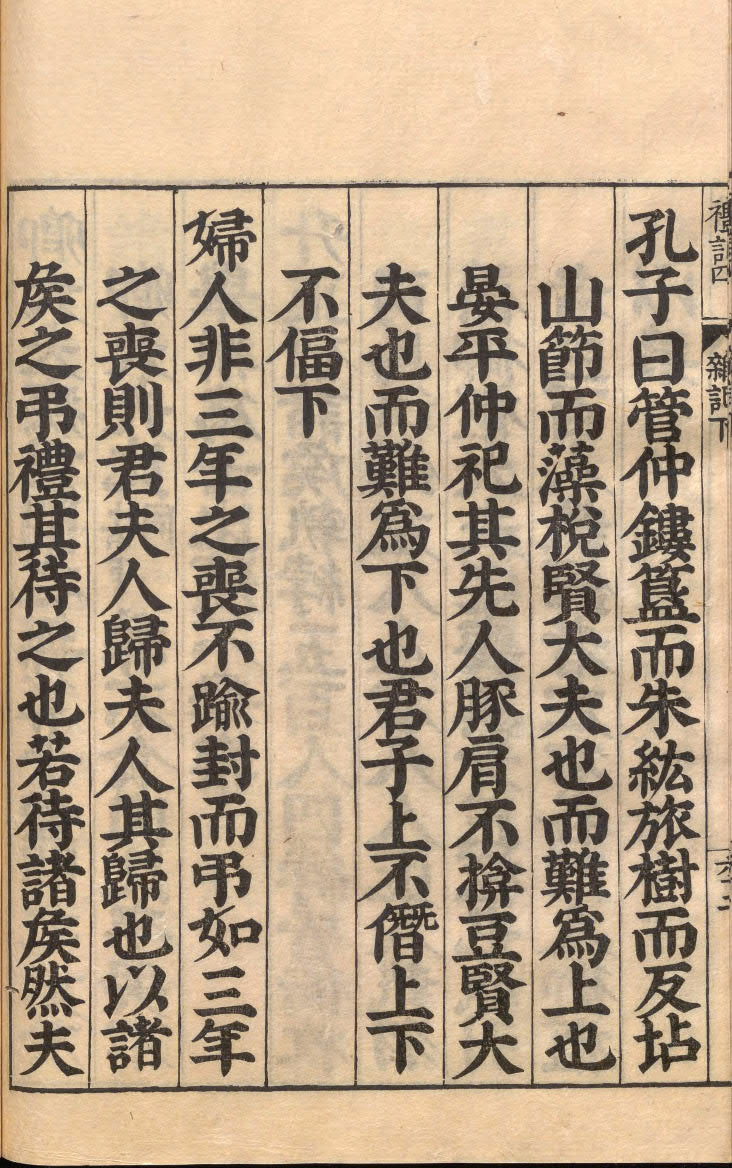 禮記四
雜記下
孔子曰管仲鏤簋而朱紘旅樹而反坫
山節而藻梲賢大夫也而難爲上也
晏平仲祀其先人豚肩不揜豆賢大
夫也而難爲下也君子上不僭上下
不偪下
婦人非三年之喪不踰封而弔如三年
之喪則君夫人歸夫人其歸也以諸
矦之弔禮其待之也若待諸矦然夫